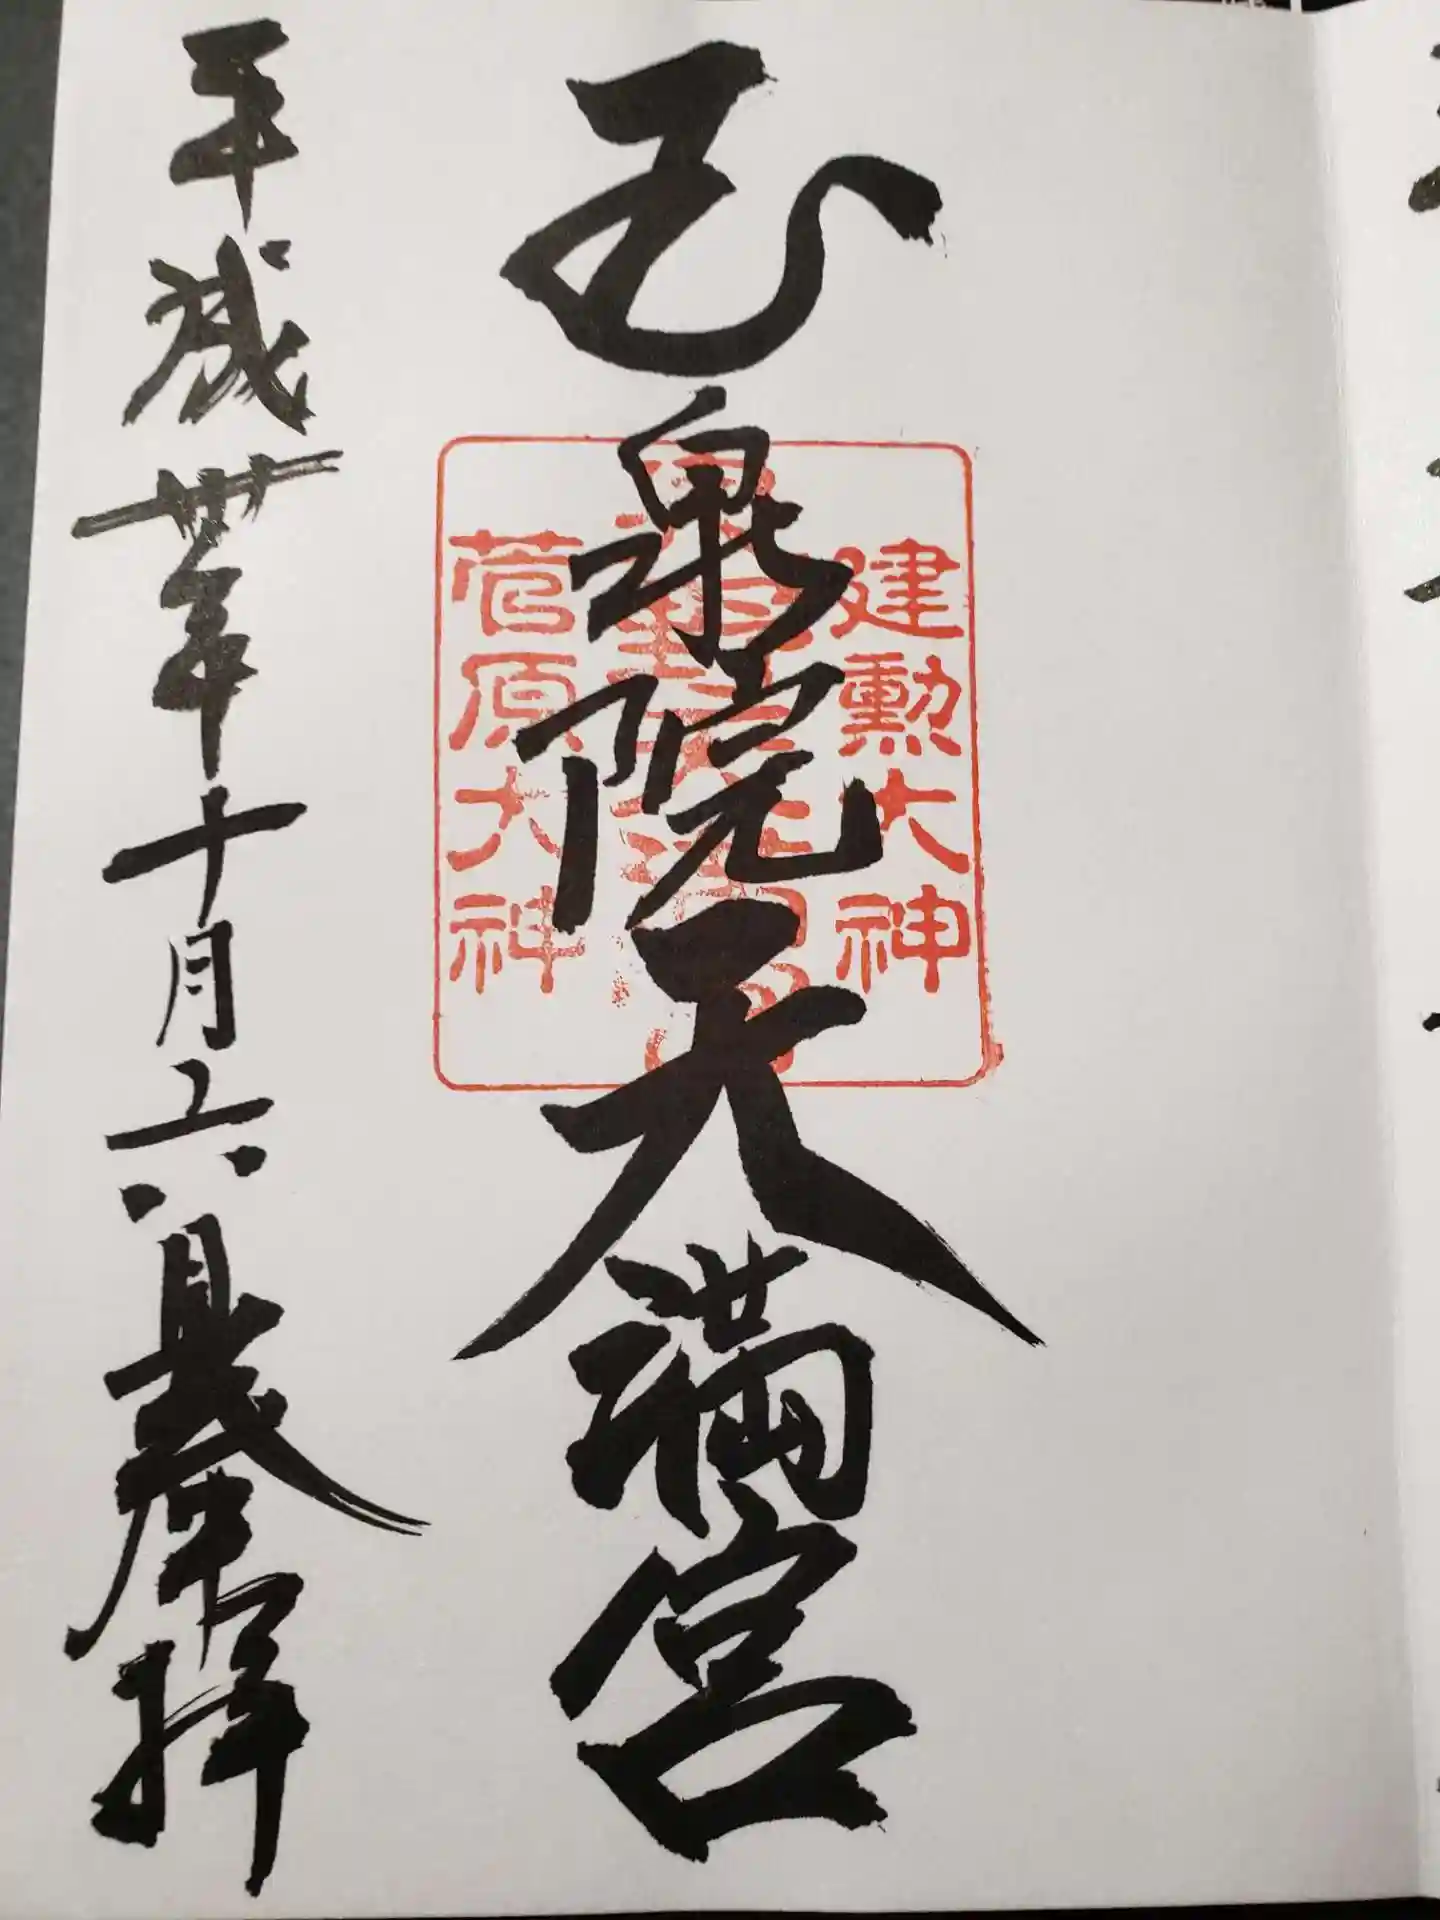 玉泉院天満宮
建勲大神
菅原大神
平成卅年十月六日奉拝